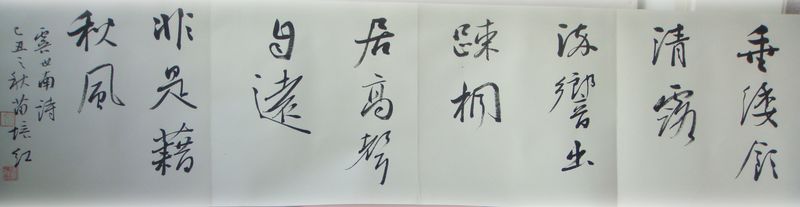 垂緌飲
清露
流響出
踈桐
居高聲
自遠
非是藉
秋風
虞世南詩
己丑之秋苗培红